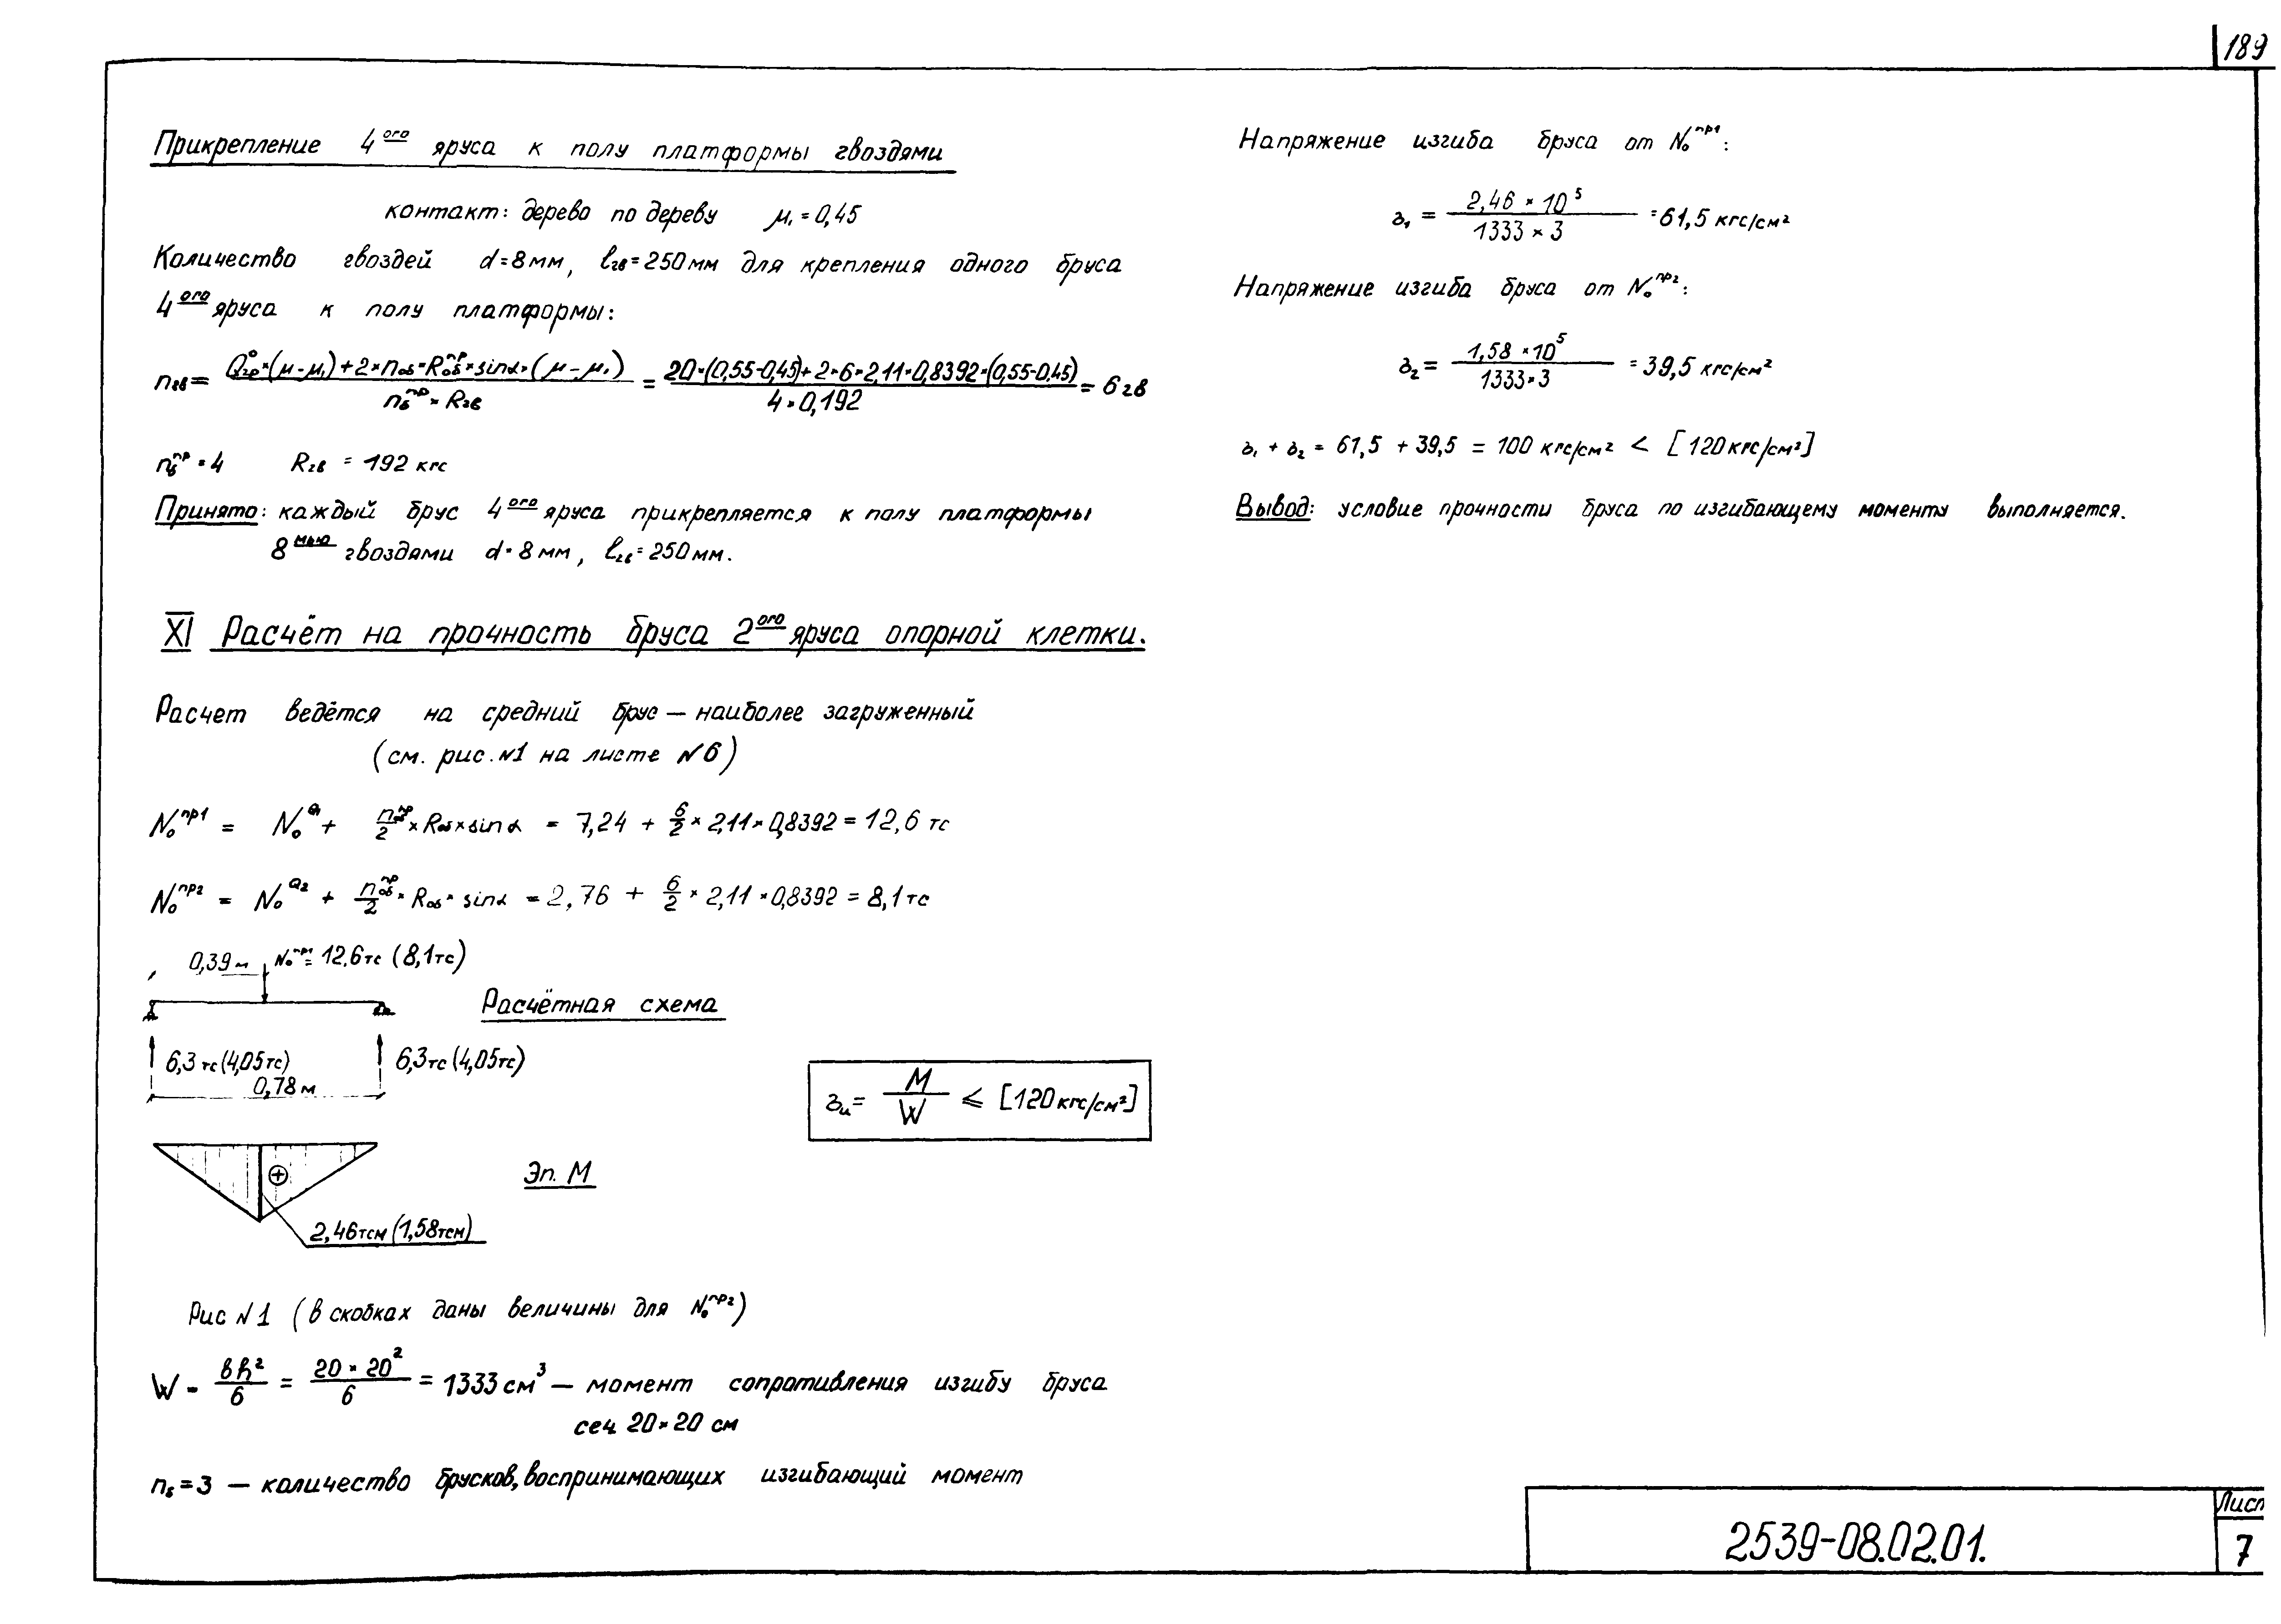 189
Прикрепление 4ого яруса к полу платформы гвоздями
контакт: дерево по дереву μ₁ = 0,45
Количество гвоздей d = 8 мм, lгв = 250 мм для крепления одного бруса
4ого яруса к полу платформы:
nгв = (Qгр° × (μ - μ₁) + 2 × nоб × Rоб^пр × sinα × (μ - μ₁)) / (nб^пр × Rгв) = (20 × (0,55 - 0,45) + 2 × 6 × 2,11 × 0,8392 × (0,55 - 0,45)) / (4 × 0,192) = 6 гв
nб^пр = 4 Rгв = 192 кгс
Принято: каждый брус 4ого яруса прикрепляется к полу платформы
8мью гвоздями d = 8 мм, lгв = 250 мм.
XI Расчёт на прочность бруса 2ого яруса опорной клетки.
Расчет ведётся на средний брус — наиболее загруженный
(см. рис. №1 на листе №6)
N₀^пр1 = N₀^Q1 + nоб^пр/2 × Rоб × sinα = 7,24 + 6/2 × 2,11 × 0,8392 = 12,6 тс
N₀^пр2 = N₀^Q2 + nоб^пр/2 × Rоб × sinα = 2,76 + 6/2 × 2,11 × 0,8392 = 8,1 тс
0,39 м N₀^пр1 = 12,6 тс (8,1 тс)
Расчётная схема
6,3 тс (4,05 тс) 6,3 тс (4,05 тс)
0,78 м
σи = M/W ≤ [120 кгс/см²]
Эп. М
2,46 тсм (1,58 тсм)
Рис №1 (в скобках даны величины для N₀^пр2)
W = bh²/6 = 20 × 20²/6 = 1333 см³ — момент сопротивления изгибу бруса
сеч. 20 × 20 см
nб = 3 — количество брусков, воспринимающих изгибающий момент
Напряжение изгиба бруса от N₀^пр1:
σ₁ = 2,46 × 10⁵ / 1333 × 3 = 61,5 кгс/см²
Напряжение изгиба бруса от N₀^пр2:
σ₂ = 1,58 × 10⁵ / 1333 × 3 = 39,5 кгс/см²
σ₁ + σ₂ = 61,5 + 39,5 = 100 кгс/см² < [120 кгс/см²]
Вывод: условие прочности бруса по изгибающему моменту выполняется.
2539-08.02.01.
Лист
7